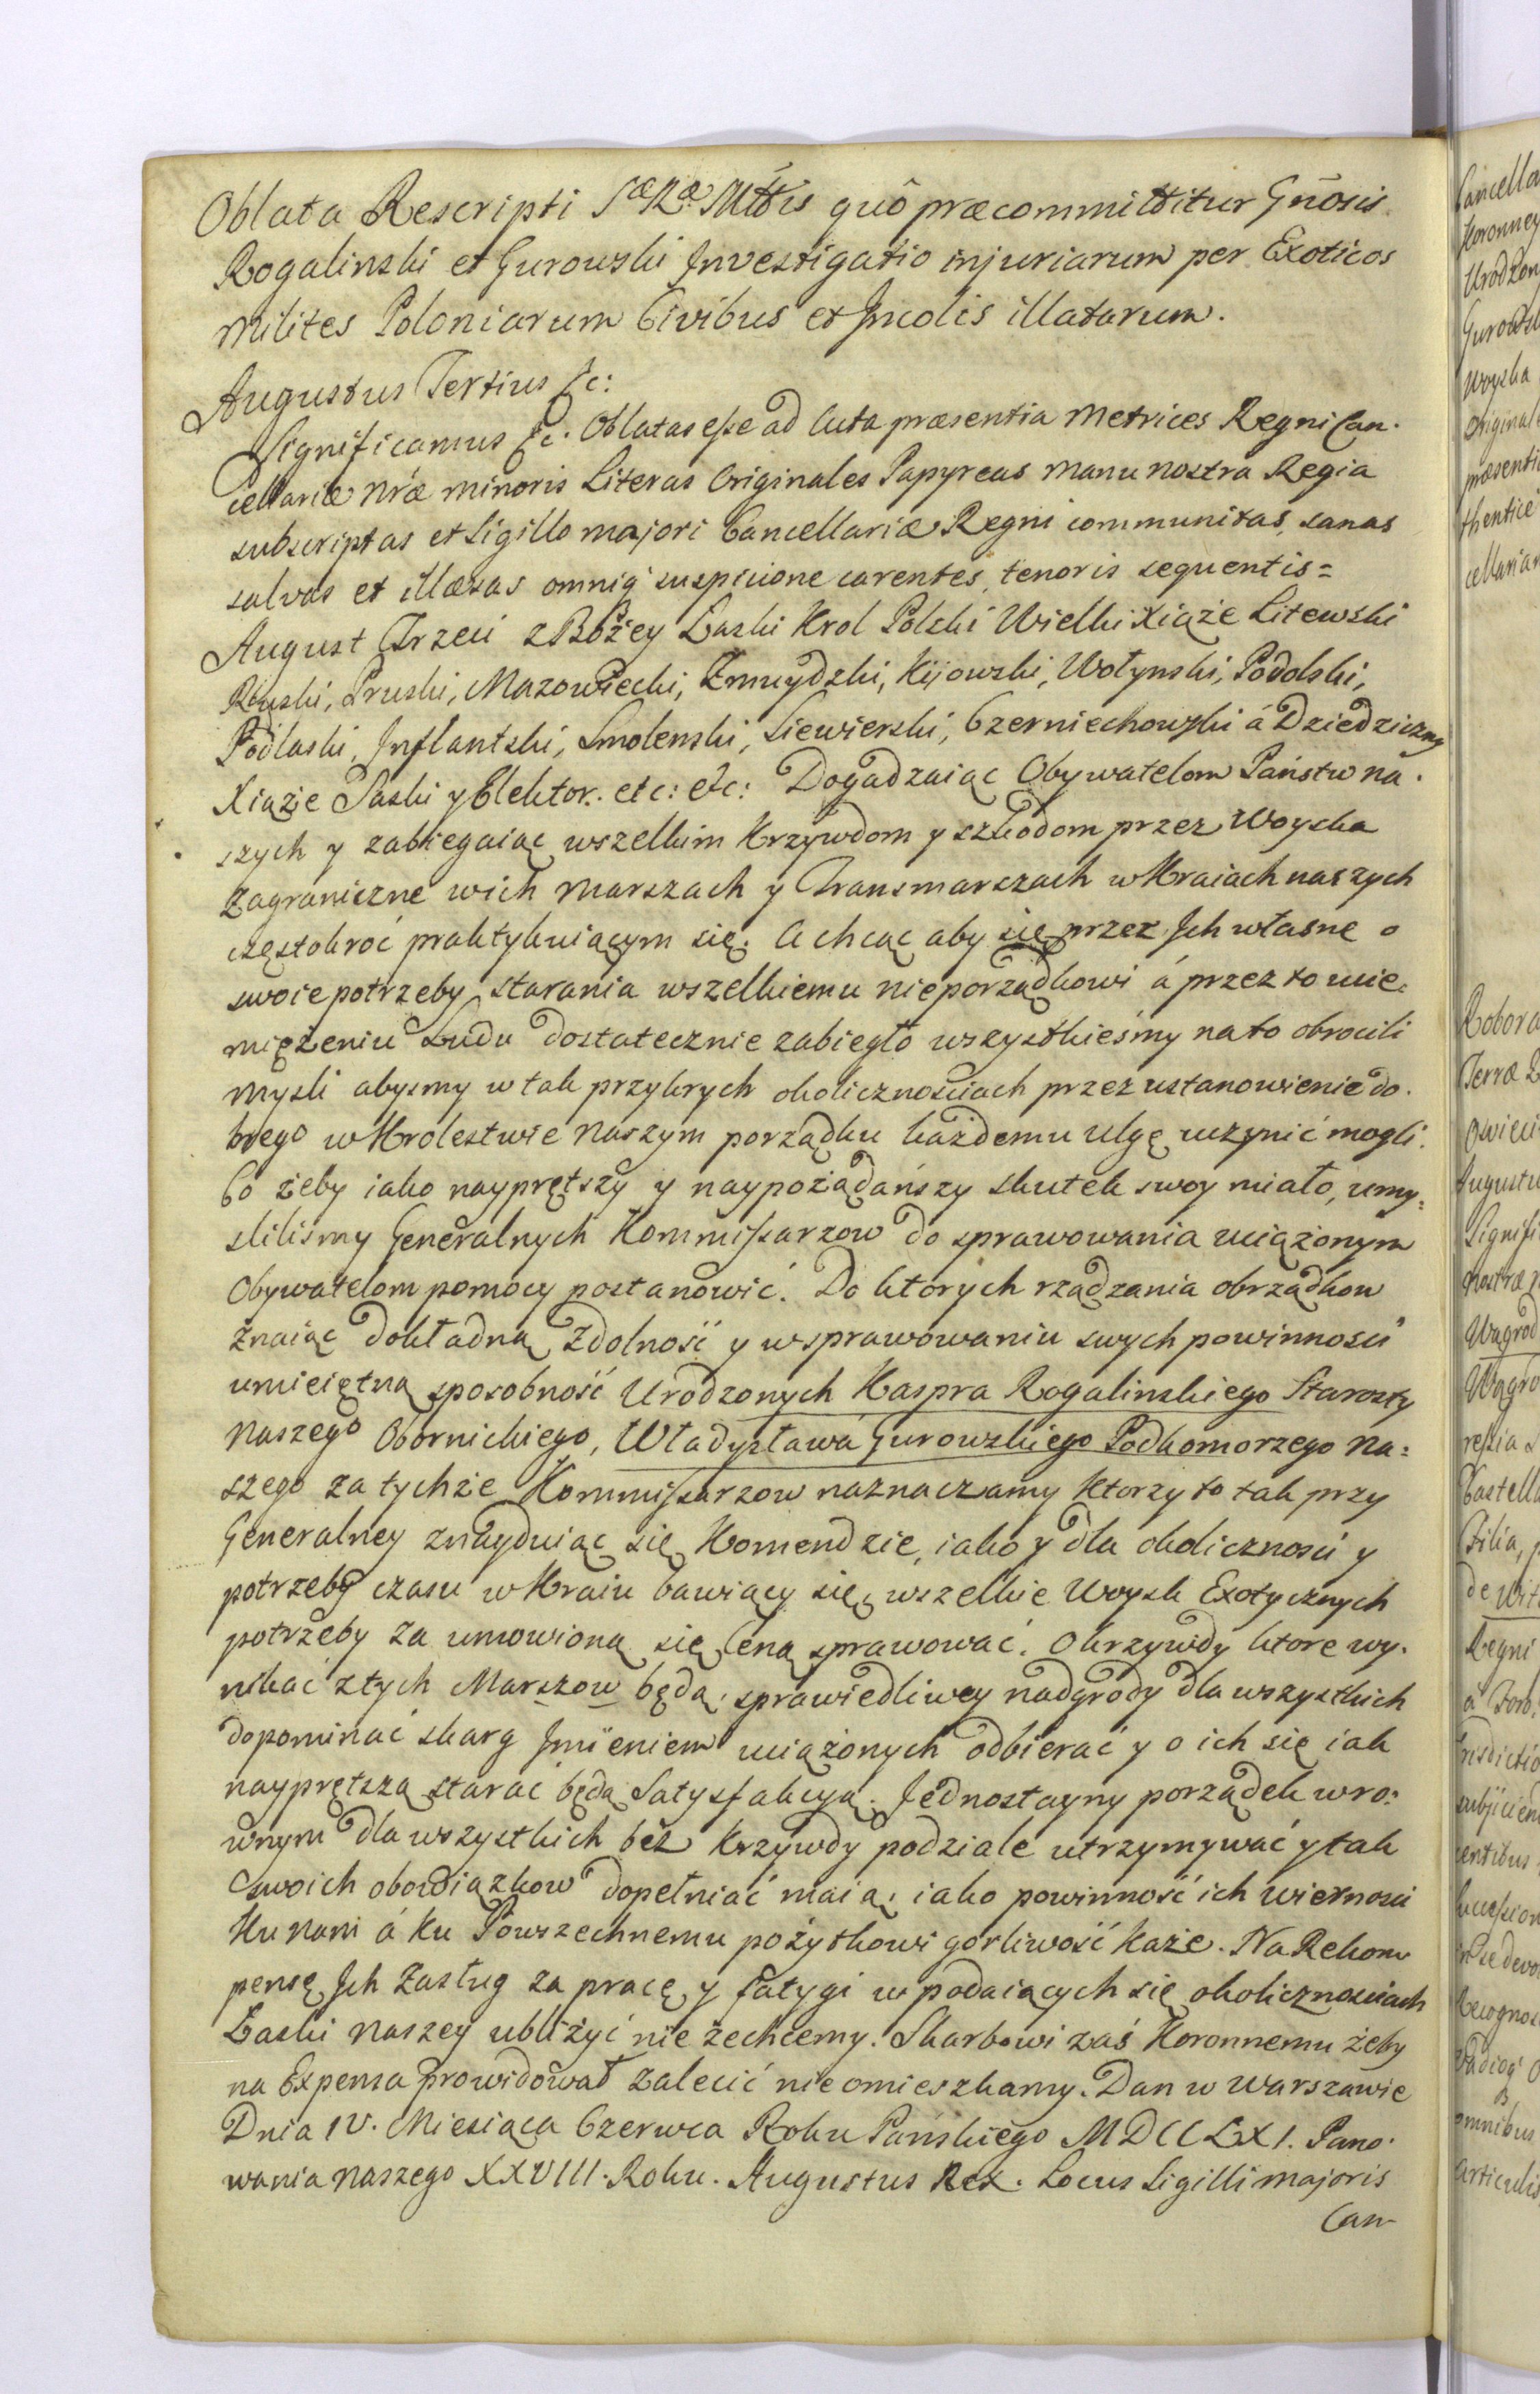 Oblata Rescripti Sæ Ræ Mttis quô præcommittitur Gnosis
Rogalinski et Gurowski Investigatio injuriarum per Exoticos
milites Poloniarum Civibus et Incolis illatarum.
Augustus Tertius &c:
Significamus &c. Oblatas esse ad Acta præsentia Metrices Regni Can-
cellariæ Nræ minoris Literas Originales Papyreas manu nostra Regia
subscriptas et Sigillo majori Cancellariæ Regni communitas, sanas
salvas et illæsas omniq suspicione carentes, tenoris sequentis =
August Trzeci z Bożey Łaski Krol Polski Wielki Xiąże Litewski
Ruski, Pruski, Mazowiecki, Zmuydzki, Kijowski, Wołynski, Podolski,
Podlaski, Inflantski, Smolenski, Siewierski, Czerniechowski á Dziedziczny
Xiąże Saski y Elektor. etc: etc: Dogadzaiąc Obywatelom Państw na-
szych y zabiegaiąc wszelkim Krzywdom y szkodom przez Woyska
zagraniczne wich Marszach y Transmarszach w Kraiach naszych
częstokroć praktykuiącym się. A chcąc aby się przez Ich własne o
swoie potrzeby starania wszelkiemu nieporządkowi á przez to ucie-
mięzeniu Ludu dostatecznie zabiegło wszystkieśmy na to obrocili
mysli abysmy w tak przykrych okolicznościach przez ustanowienie do-
brego w Krolestwie Naszym porządku każdemu ulgę uczynić mogli.
Co żeby iako nayprętszy y naypożądańszy skutek swoy miało, umy-
sliliśmy Generalnych Kommissarzow do sprawowania uciążonym
Obywatelom pomocy postanowić. Do ktorych rządzania obrządkow
znaiąc dokładną zdolność y w sprawowaniu swych powinności
umieiętną sposobność Urodzonych Kaspra Rogalinskiego Starosty
Naszego Obornickiego, Władysława Gurowskiego Podkomorzego Na-
szego za tychże Kommissarzow naznaczamy ktorzy to tak przy
Generalney znayduiąc się Komendzie, iako y dla okoliczności y
potrzeby czasu w Kraiu bawiący się, wszelkie Woysk Exotycznych
potrzeby za umowioną się Ceną sprawować. O krzywdy ktore wy-
nikać z tych Marszow będą, sprawiedliwey nadgrody dla wszystkich
dopominać skarg Imieniem uciążonych odbierać y o ich się iak
nayprętszą starać będą Satysfakcyą. Jednostayny porządek w ro-
wnym dla wszystkich bez Krzywdy podziale utrzymywać y tak
swoich obowiązkow dopełniać maią, iako powinność ich wierności
Ku nam á ku Powszechnemu pożytkowi gorliwość każe. Na Rekom
pensę Ich Zasług za pracę y fatygi w podaiących się okolicznościach
Łaski naszey ubliżyć nie zechcemy. Skarbowi zaś Koronnemu żeby
na Expensa prowidował zalecić nie omieszkamy. Dan w Warszawie
Dnia IV. Miesiąca Czerwca Roku Pańskiego MDCCLXI. Pano-
wania naszego XXVIII. Roku. Augustus Rex. Locus Sigilli majoris
Can-